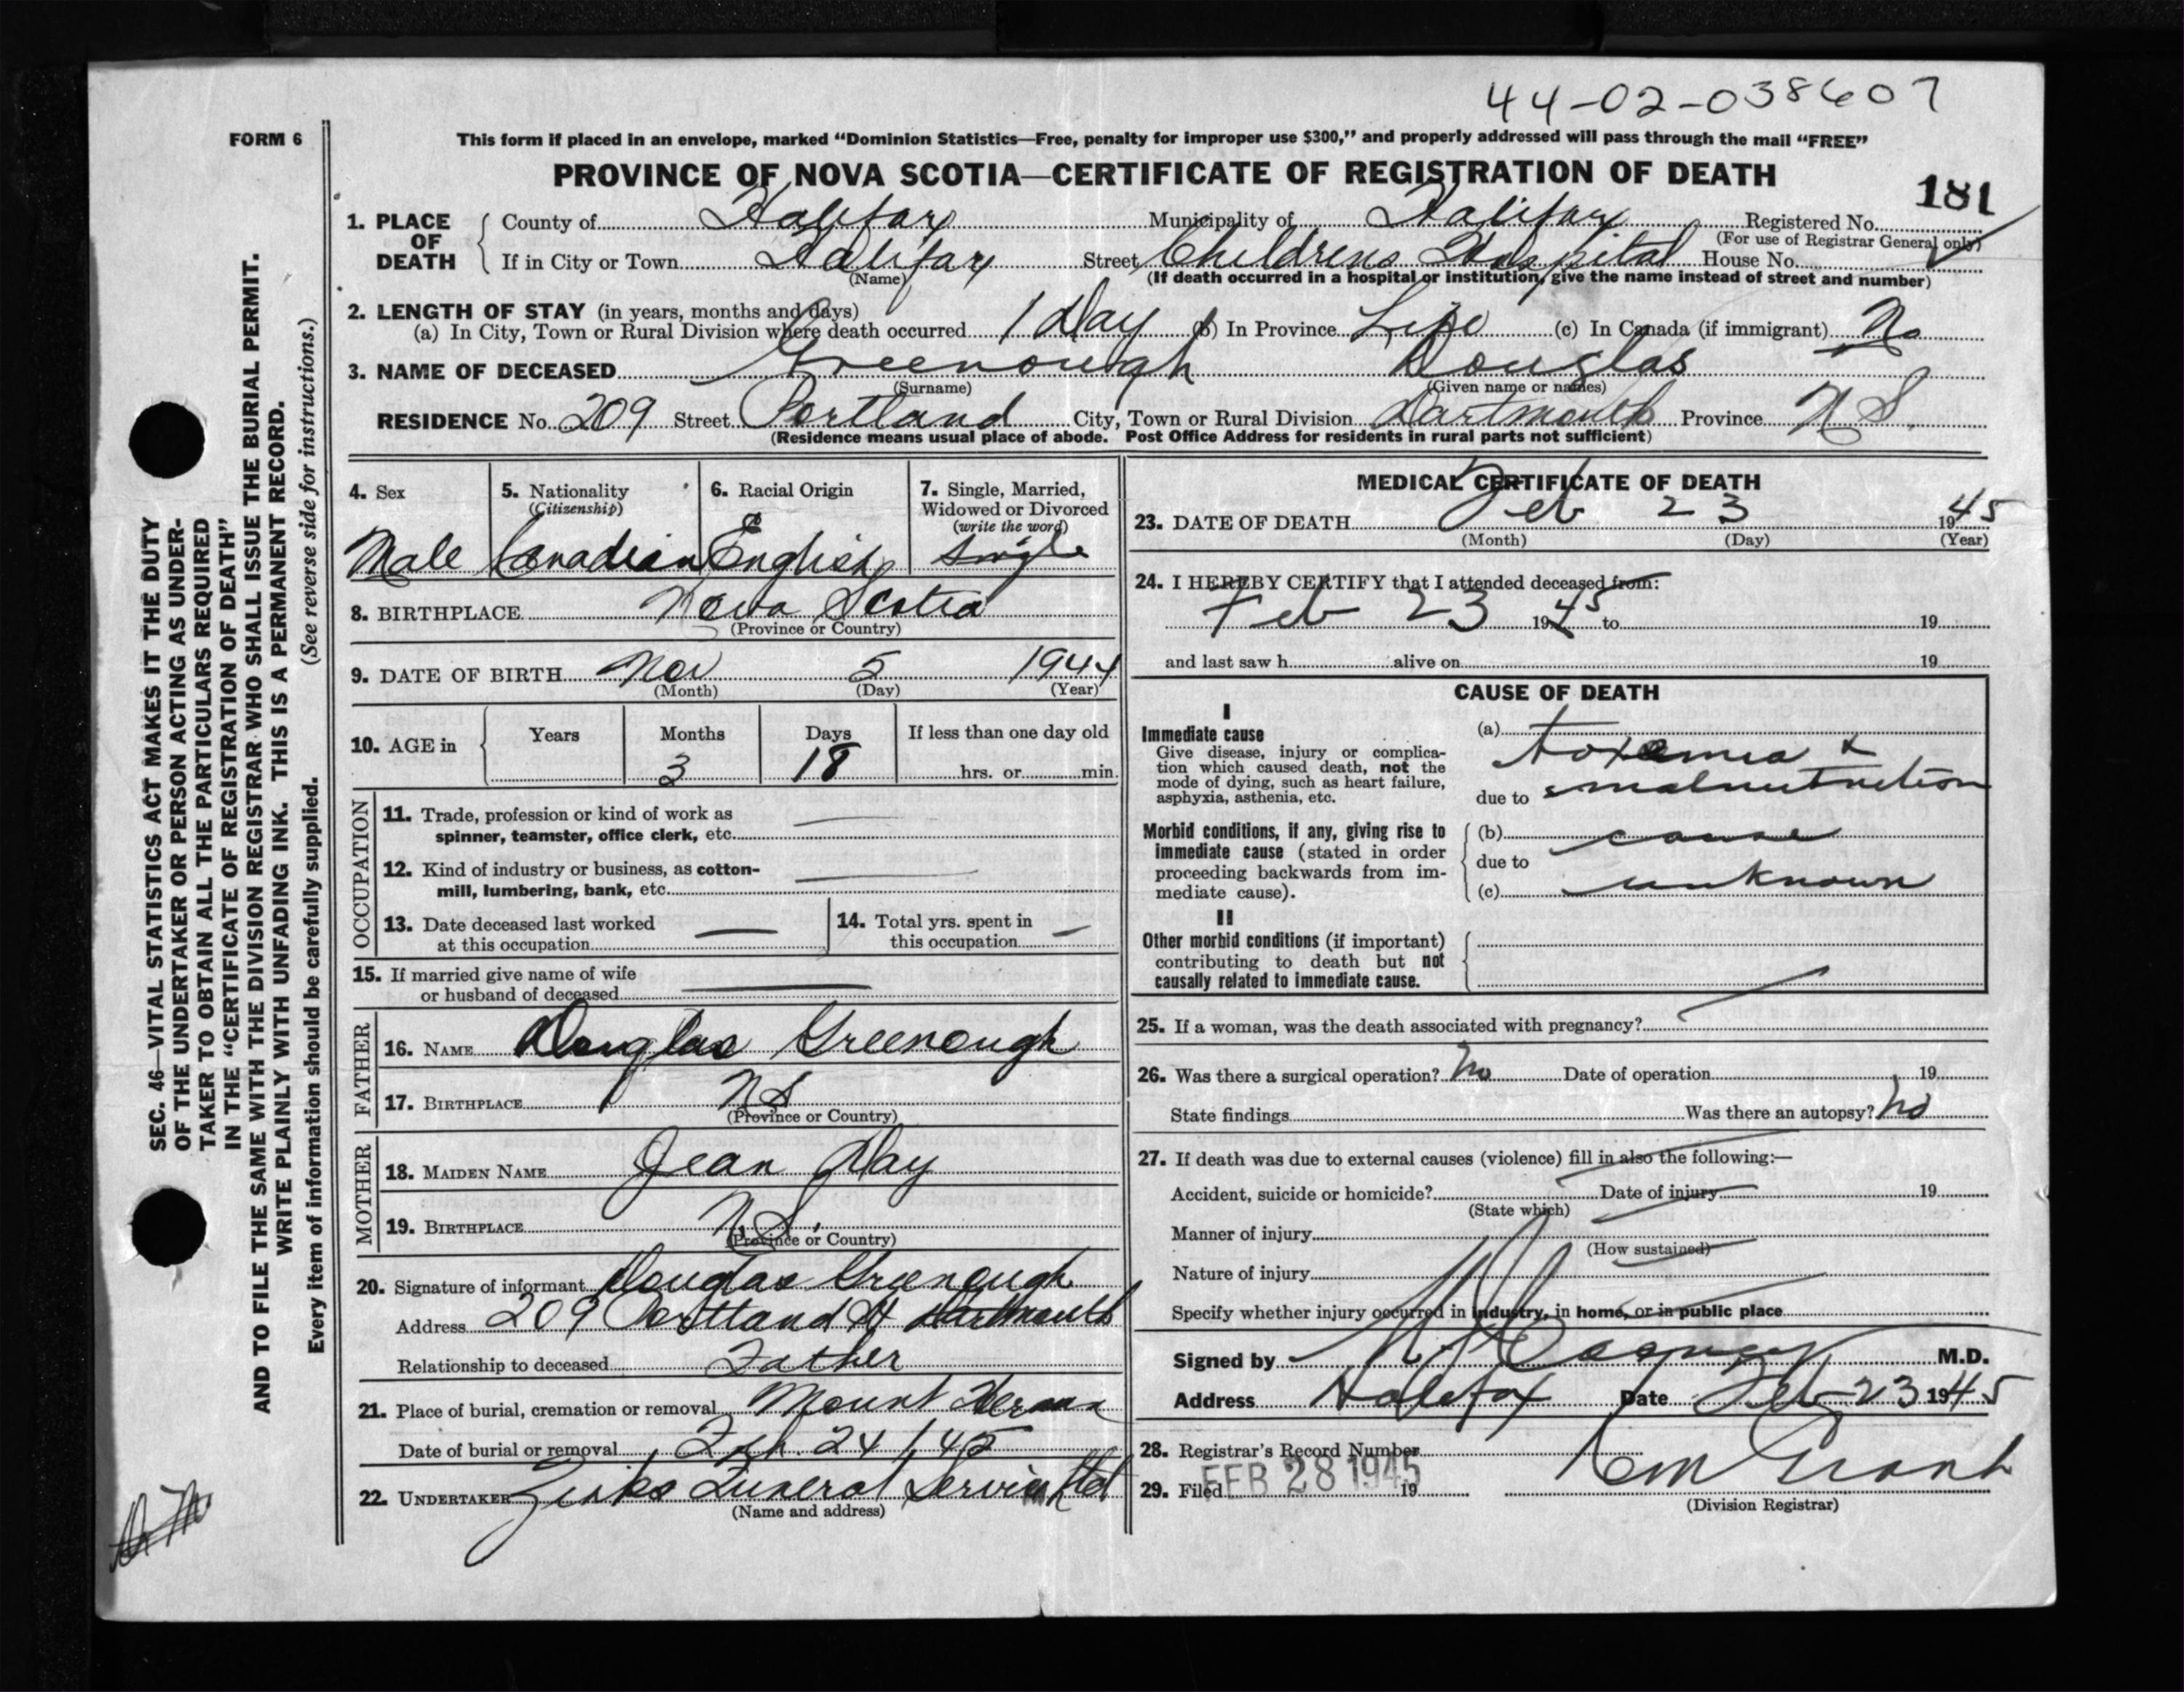 44-02-038607
FORM 6
This form if placed in an envelope, marked “Dominion Statistics—Free, penalty for improper use $300,” and properly addressed will pass through the mail “FREE”
PROVINCE OF NOVA SCOTIA—CERTIFICATE OF REGISTRATION OF DEATH
181
1. PLACE OF DEATH County of Halifax Municipality of Halifax Registered No.
(For use of Registrar General only)
If in City or Town Halifax Street Childrens Hospital House No.
(Name) (If death occurred in a hospital or institution, give the name instead of street and number)
2. LENGTH OF STAY (in years, months and days)
(a) In City, Town or Rural Division where death occurred 1 Day (b) In Province Life (c) In Canada (if immigrant) No
3. NAME OF DECEASED Greenough Douglas
(Surname) (Given name or names)
RESIDENCE No. 209 Street Portland City, Town or Rural Division Dartmouth Province N S.
(Residence means usual place of abode. Post Office Address for residents in rural parts not sufficient)
4. Sex 5. Nationality 6. Racial Origin 7. Single, Married,
(Citizenship) Widowed or Divorced
(write the word)
Male Canadian English Single
8. BIRTHPLACE Nova Scotia
(Province or Country)
9. DATE OF BIRTH Nov 5 1944
(Month) (Day) (Year)
10. AGE in Years Months Days If less than one day old
3 18 hrs. or min.
OCCUPATION
11. Trade, profession or kind of work as
spinner, teamster, office clerk, etc.
12. Kind of industry or business, as cotton-
mill, lumbering, bank, etc.
13. Date deceased last worked 14. Total yrs. spent in
at this occupation this occupation
15. If married give name of wife
or husband of deceased
FATHER
16. NAME Douglas Greenough
17. BIRTHPLACE N S
(Province or Country)
MOTHER
18. MAIDEN NAME Jean Day
19. BIRTHPLACE N S.
(Province or Country)
20. Signature of informant Douglas Greenough
Address 209 Portland St Dartmouth
Relationship to deceased Father
21. Place of burial, cremation or removal Mount Herman
Date of burial or removal Feb. 24/45
22. UNDERTAKER Zinks Funeral Service Ltd
(Name and address)
MEDICAL CERTIFICATE OF DEATH
23. DATE OF DEATH Feb 23 1945
(Month) (Day) (Year)
24. I HEREBY CERTIFY that I attended deceased from:
Feb 23 1945 to 19
and last saw h alive on 19
CAUSE OF DEATH
I
Immediate cause (a) toxemia &
Give disease, injury or complica-
tion which caused death, not the
mode of dying, such as heart failure,
asphyxia, asthenia, etc. due to malnutrition
Morbid conditions, if any, giving rise to (b) cause
immediate cause (stated in order due to
proceeding backwards from im-
mediate cause). (c) unknown
II
Other morbid conditions (if important)
contributing to death but not
causally related to immediate cause.
25. If a woman, was the death associated with pregnancy?
26. Was there a surgical operation? No Date of operation 19
State findings Was there an autopsy? No
27. If death was due to external causes (violence) fill in also the following:—
Accident, suicide or homicide? Date of injury 19
(State which)
Manner of injury
(How sustained)
Nature of injury
Specify whether injury occurred in industry, in home, or in public place
Signed by M.D.
Address Halifax Date Feb 23 1945
28. Registrar's Record Number
29. Filed FEB 28 1945 19
Grant
(Division Registrar)
SEC. 46—VITAL STATISTICS ACT MAKES IT THE DUTY
OF THE UNDERTAKER OR PERSON ACTING AS UNDER-
TAKER TO OBTAIN ALL THE PARTICULARS REQUIRED
IN THE “CERTIFICATE OF REGISTRATION OF DEATH”
AND TO FILE THE SAME WITH THE DIVISION REGISTRAR WHO SHALL ISSUE THE BURIAL PERMIT.
WRITE PLAINLY WITH UNFADING INK. THIS IS A PERMANENT RECORD.
Every item of information should be carefully supplied. (See reverse side for instructions.)